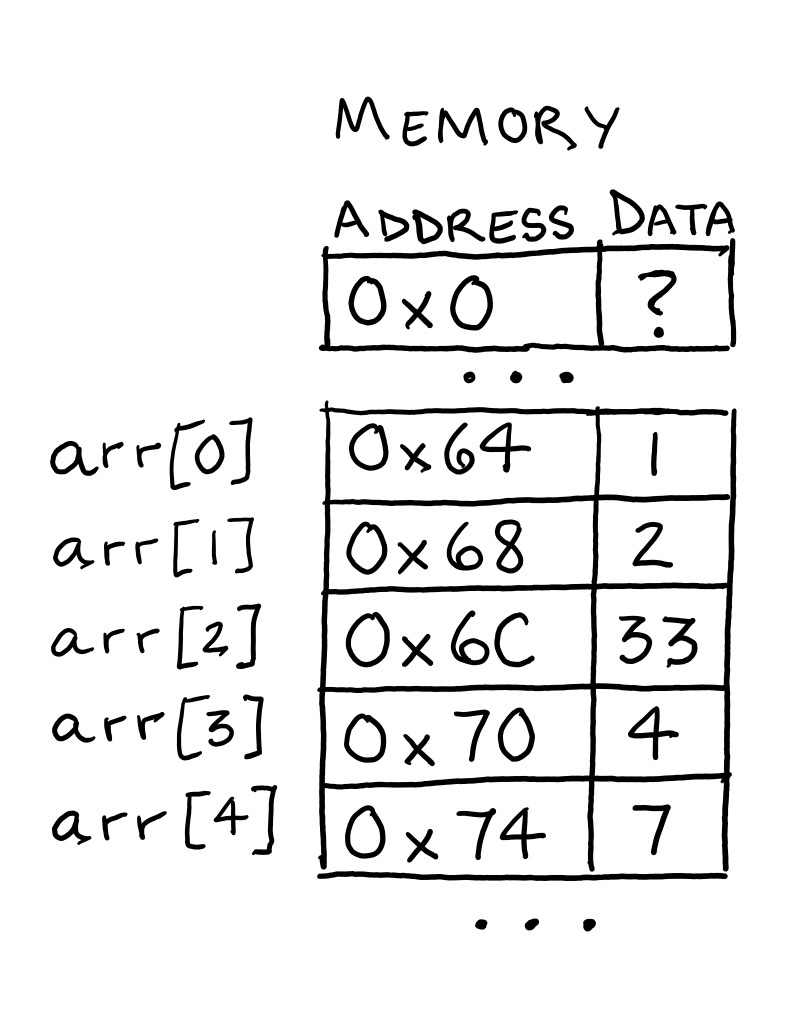 MEMORY
ADDRESS DATA
0x0 ?
...
arr[0] 0x64 1
arr[1] 0x68 2
arr[2] 0x6C 33
arr[3] 0x70 4
arr[4] 0x74 7
...